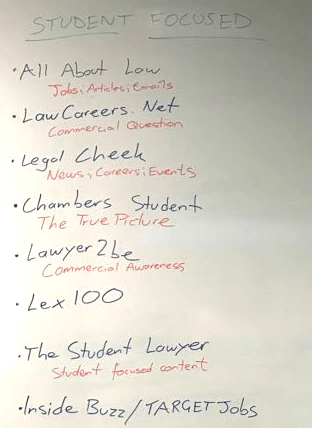 STUDENT FOCUSED
· All About Law
Jobs; Articles; Emails
· LawCareers.Net
Commercial Question
· Legal Cheek
News; Careers; Events
· Chambers Student
The True Picture
· Lawyer2be
Commercial Awareness
· Lex 100
· The Student Lawyer
Student focused content
· Inside Buzz/TARGET Jobs